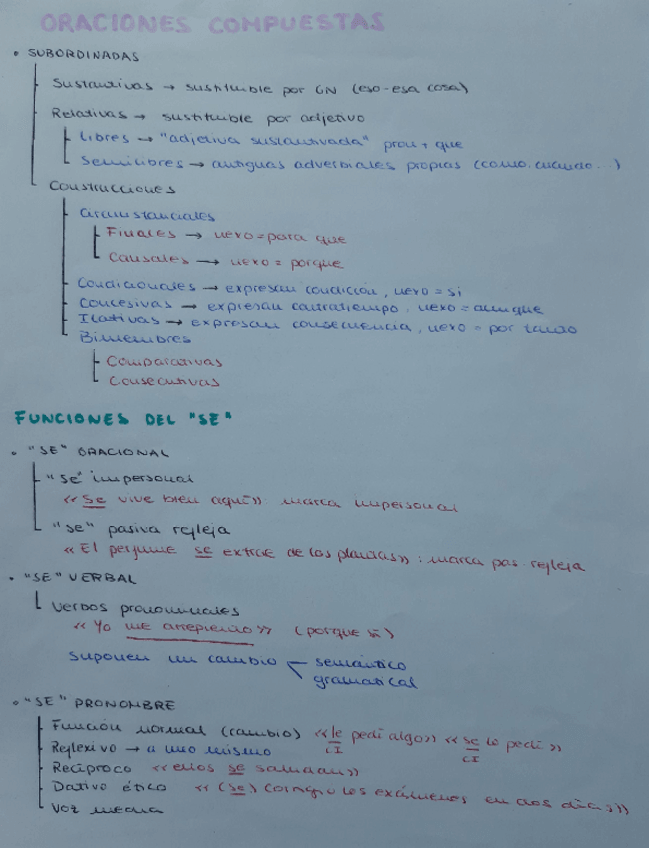 ORACIONES COMPUESTAS
• SUBORDINADAS
Sustantivas → sustituible por GN (eso-esa cosa)
Relativas → sustituible por adjetivo
Libres → "adjetiva sustantivada" pron + que
Semilibres → antiguas adverbiales propias (como, cuando...)
Construcciones
Circunstanciales
Finales → nexo = para que
Causales → nexo = porque
Condicionales → expresan condición, nexo = si
Concesivas → expresan contratiempo, nexo = aunque
Ilativas → expresan consecuencia, nexo = por tanto
Bimembres
Comparativas
Consecutivas
FUNCIONES DEL "SE"
• "SE" ORACIONAL
"Se" impersonal
«Se vive bien aquí»: marca impersonal
"se" pasiva refleja
«El perfume se extrae de las plantas»: marca pas. refleja
• "SE" VERBAL
Verbos pronominales
«Yo me arrepiento» (porque sí)
suponen un cambio semántico
gramatical
• "SE" PRONOMBRE
Función normal (cambio) «le pedí algo» «se lo pedí»
CI CI
Reflexivo → a uno mismo
Recíproco «ellos se saludan»
Dativo ético «(se) corrigió los exámenes en dos días»
Voz media